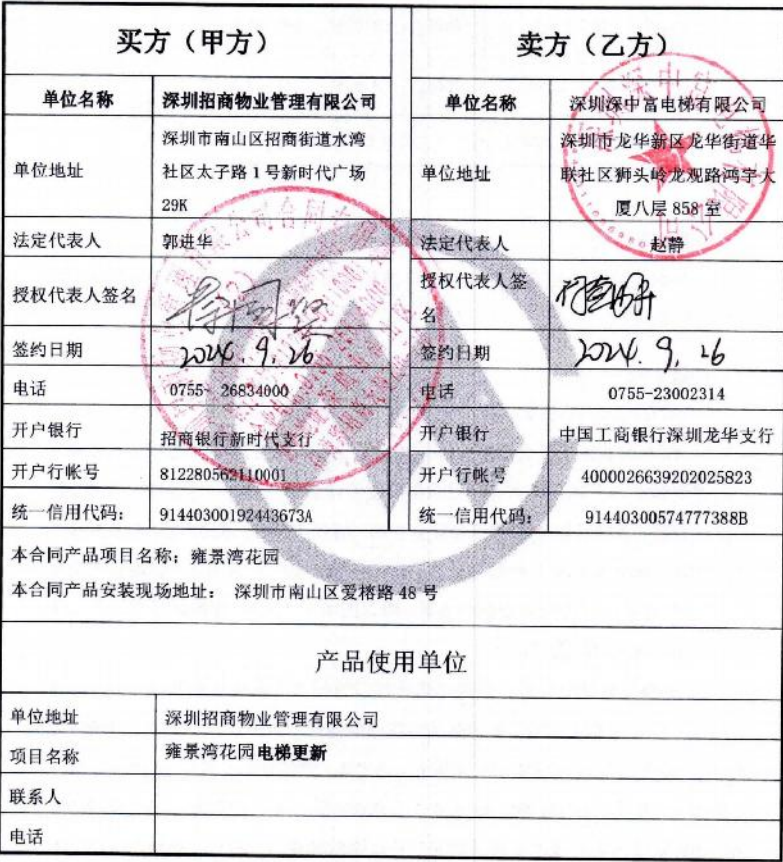 买方（甲方）
卖方（乙方）
单位名称 深圳招商物业管理有限公司
单位名称 深圳深中富电梯有限公司
单位地址 深圳市南山区招商街道水湾
社区太子路 1 号新时代广场
29K
单位地址 深圳市龙华新区龙华街道华
联社区狮头岭龙观路鸿宇大
厦八层 858 室
法定代表人 郭进华
法定代表人 赵静
授权代表人签名
授权代表人签
名
签约日期 2024.9.26
签约日期 2024.9.26
电话 0755- 26834000
电话 0755-23002314
开户银行 招商银行新时代支行
开户银行 中国工商银行深圳龙华支行
开户行帐号 812280562110001
开户行帐号 4000026639202025823
统一信用代码： 91440300192443673A
统一信用代码： 91440300574777388B
本合同产品项目名称：雍景湾花园
本合同产品安装现场地址： 深圳市南山区爱榕路 48 号
产品使用单位
单位地址 深圳招商物业管理有限公司
项目名称 雍景湾花园电梯更新
联系人
电话